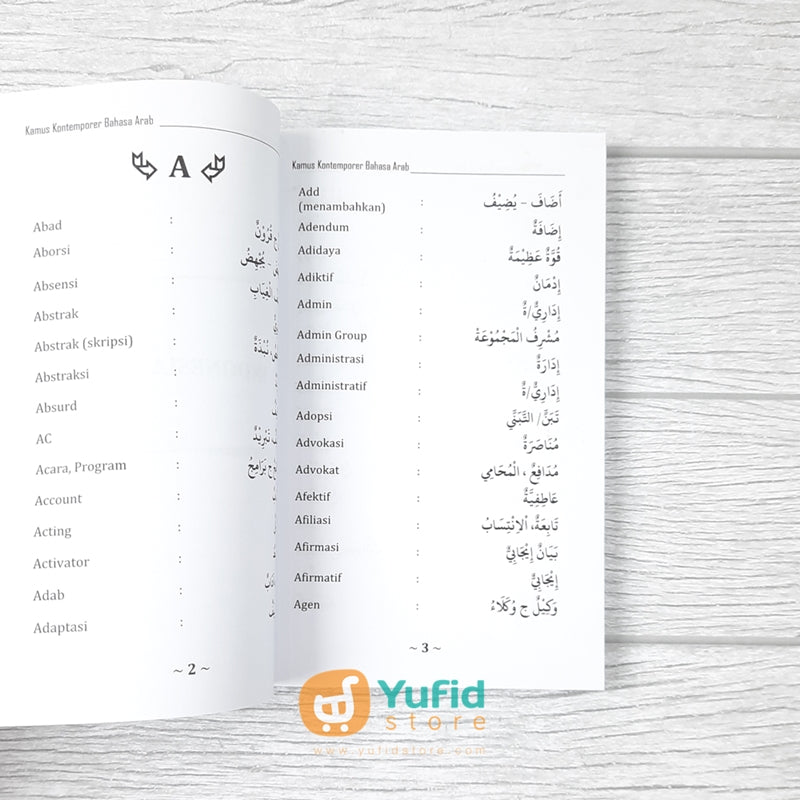 Kamus Kontemporer Bahasa Arab
A
Abad :
قُرُوْنٌ
Aborsi :
يُجْهِضُ
Absensi :
الْغِيَابِ
Abstrak :
Abstrak (skripsi) :
نُبْذَةٌ
Abstraksi :
Absurd :
AC :
تَبْرِيْدٌ
Acara, Program :
ج بَرَامِجُ
Account :
Acting :
Activator :
Adab :
Adaptasi :
~ 2 ~
Kamus Kontemporer Bahasa Arab
Add
(menambahkan) : أَضَافَ – يُضِيْفُ
Adendum : إِضَافَةٌ
Adidaya : قُوَّةٌ عَظِيْمَةٌ
Adiktif : إِدْمَانٌ
Admin : إِدَارِيٌّ/ةٌ
Admin Group : مُشْرِفُ الْمَجْمُوْعَةْ
Administrasi : إِدَارَةٌ
Administratif : إِدَارِيٌّ/ةٌ
Adopsi : تَبَنٍّ/ التَّبَنِّي
Advokasi : مُنَاصَرَةٌ
Advokat : مُدَافِعٌ ، الْمُحَامِي
Afektif : عَاطِفِيَّةٌ
Afiliasi : تَابِعَةٌ، الْاِنْتِسَابْ
Afirmasi : بَيَانٌ إِيْجَابِيٌّ
Afirmatif : إِيْجَابِيٌّ
Agen : وَكِيْلٌ ج وُكَلَاءُ
~ 3 ~
Yufid
store
www.yufidstore.com